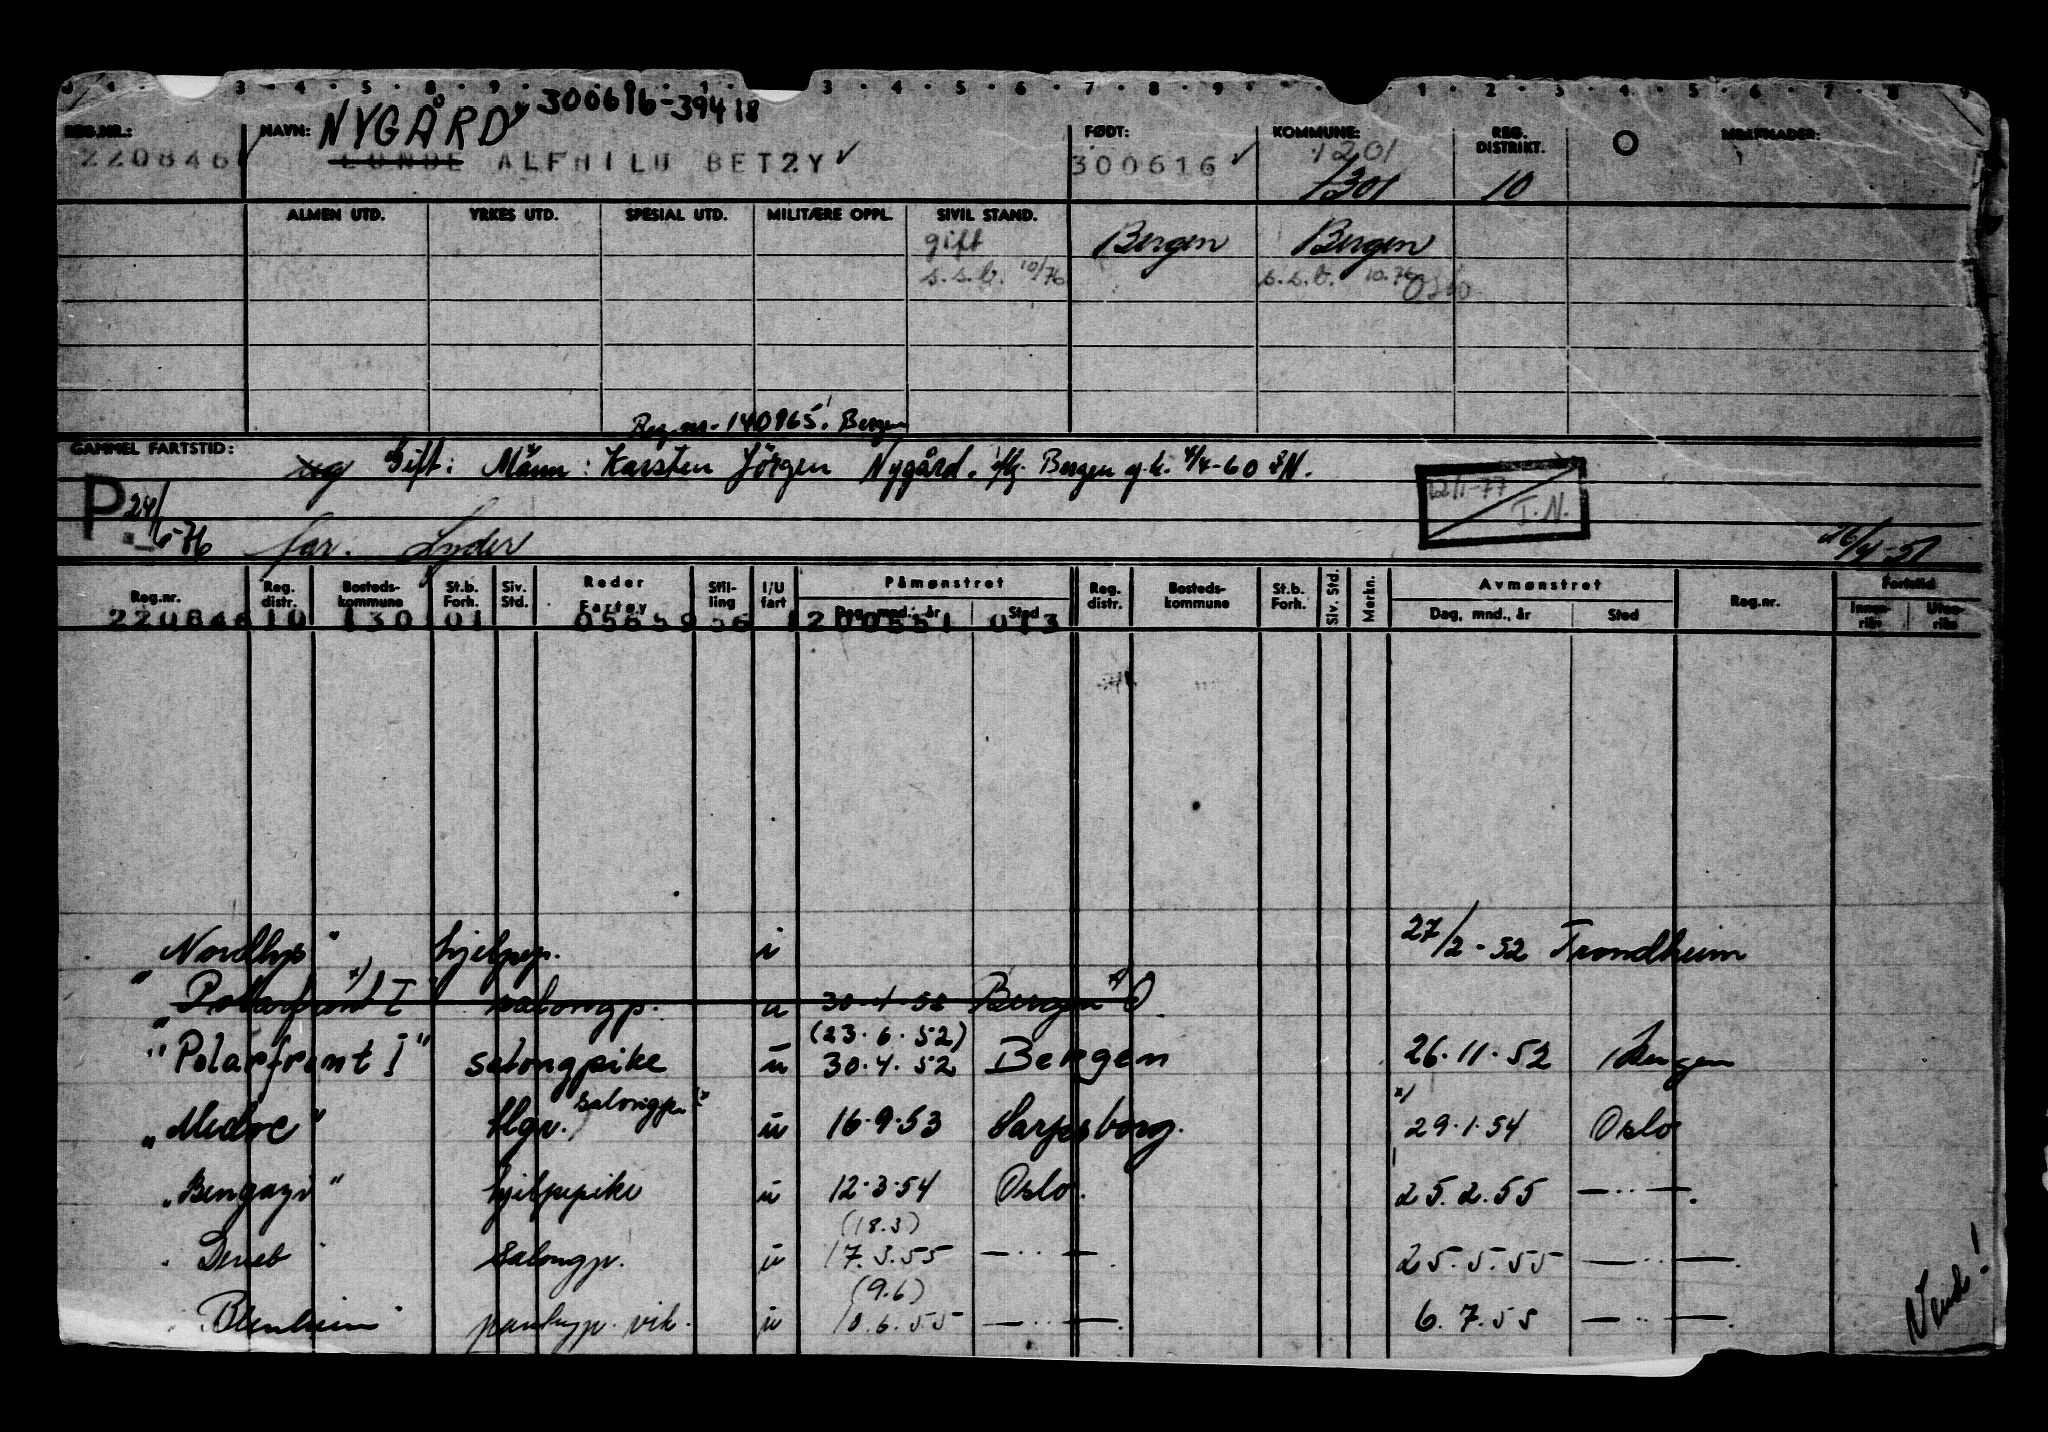 NYGÅRD 300616-39418
REG.NR.: NAVN: FØDT: KOMMUNE: REG. DISTRIKT. MERKNADER:
220846 LUNDE ALFHILD BETZY 300616 1201
1301 10
ALMEN UTD. YRKES UTD. SPESIAL UTD. MILITÆRE OPPL. SIVIL STAND.
gift Bergen Bergen
s.s.b. 10/76 s.s.b. 10.76 Oslo
Reg.nr. 140965 Bergen
GAMMEL FARTSTID:
ug Gift: Mann: Karsten Jörgen Nygård. Bergen 4/4-60
P 24/6-76 12/1-77 I.N.
far. Lyder 16/4-51
Reg.nr. Reg. distr. Bosteds-kommune St.b. Forh. Siv. Std. Reder Fartøy Stil-ling I/U fart Påmønstret Dag, mnd., år Sted Reg. distr. Bosteds-kommune St.b. Forh. Siv. Std. Merkn. Avmønstret Dag, mnd., år Sted Reg.nr. Fartstid Innen-riks Uten-riks
220846 10 1301 01 05659 56 1 200651 013
"Nordlys" hjelpep. i 27/2-52 Trondheim
"Polarfront I" x) salongp. u 30.4.52 Bergen x)
(23.6.52)
"Polarfront I" salongpike u 30.4.52 Bergen 26.11.52 Bergen
salongp. x)
"Medoc" u 16.9.53 Sarpsborg. x) 29.1.54 Oslo
"Bengazi" hjelpepike u 12.3.54 Oslo. 25.2.55 —··—.
(18.3)
"Deneb" salongp. u 17.3.55 —··—. 25.5.55 —··—
(9.6)
"Blenheim" pantryp. vik. u 10.6.55 —··—. 6.7.55 —··—.
Vend!